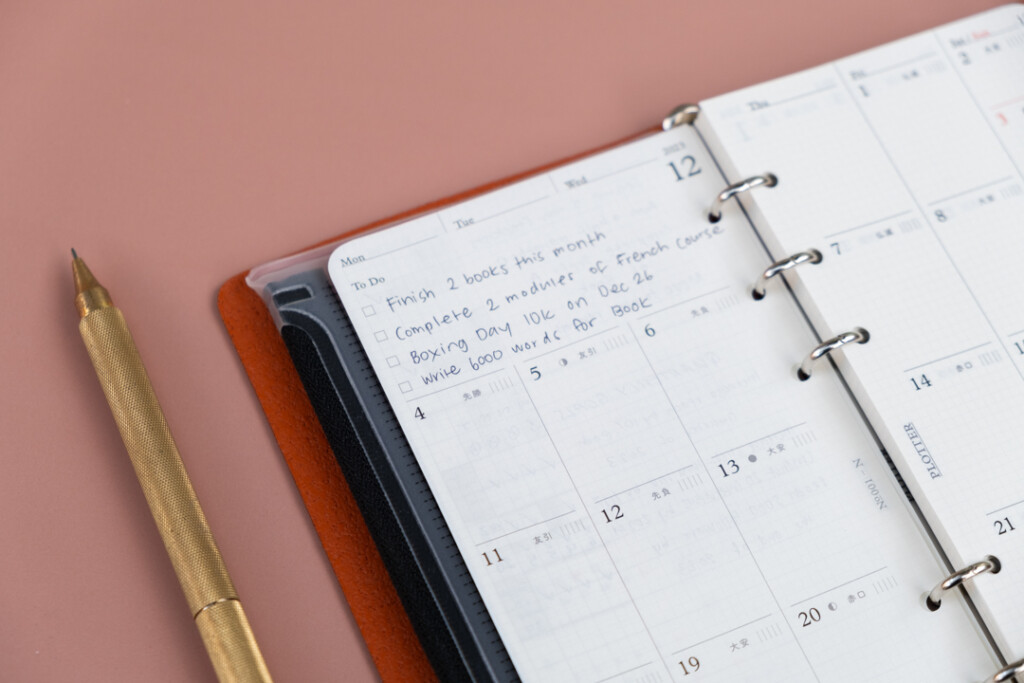 2023
12
Mon
Tue
Wed
Thu
Fri
Sat / Sun
To Do
Finish 2 books this month
Complete 2 modules of French Course
Boxing Day 10K on Dec 26
Write 6000 words for Book
1 仏滅
2 大安
3
4 先勝
5 友引
6 先負
7 仏滅
8 大安
11 友引
12 先負
13 大安
14 赤口
19 大安
20 赤口
21
PLOTTER